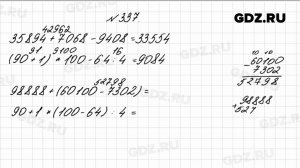 GDZ.RU
№ 337
42962
35894 + 7068 - 9408 = 33554
91 9100 16
(90 + 1) * 100 - 64 : 4 = 9084
52798
98888 + (60100 - 7302) =
90 + 1 * (100 - 64) : 4 =
10 10
- 60100
7302
52798
98888
+ 527